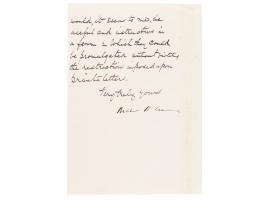 would, it seem to me, be
useful and instructive in
a form in which they could
be promulgated without
the restriction imposed upon
private letters.
Very truly yours